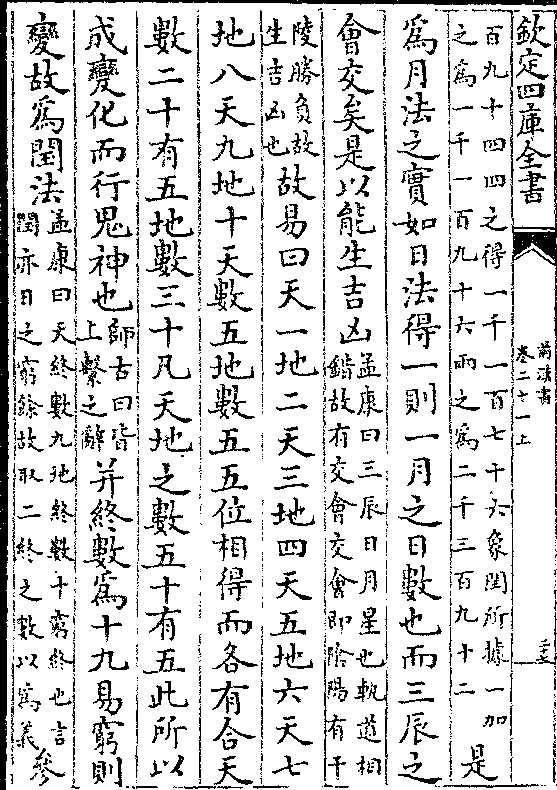 欽定四庫全書
前漢書
卷二十一上
百九十四四之得一千一百七十六象閏所據一加
之為一千一百九十六兩之為二千三百九十二
是
為月法之實如日法得一則一月之日數也而三辰之
會交矣是以能生吉凶
孟康曰三辰日月星也軌道相
錯故有交會交會即陰陽有干
陵勝負故
生吉凶也
故易曰天一地二天三地四天五地六天七
地八天九地十天數五地數五五位相得而各有合天
數二十有五地數三十凡天地之數五十有五此所以
成變化而行鬼神也
師古曰皆
上繫之辭
并終數為十九易窮則
變故為閏法
孟康曰天終數九地終數十窮終也言
閏亦日之窮餘故取二終之數以為義
參